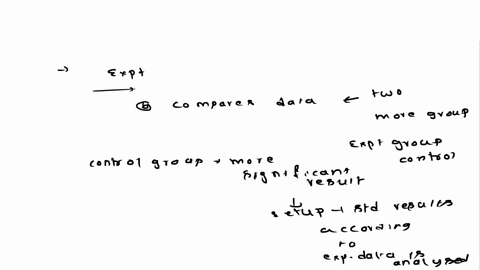 → Expt
(B) compares data ← two
more group
Expt group
control
control group → more
significant
result
setup → std results
according
to
exp. data is
analysed